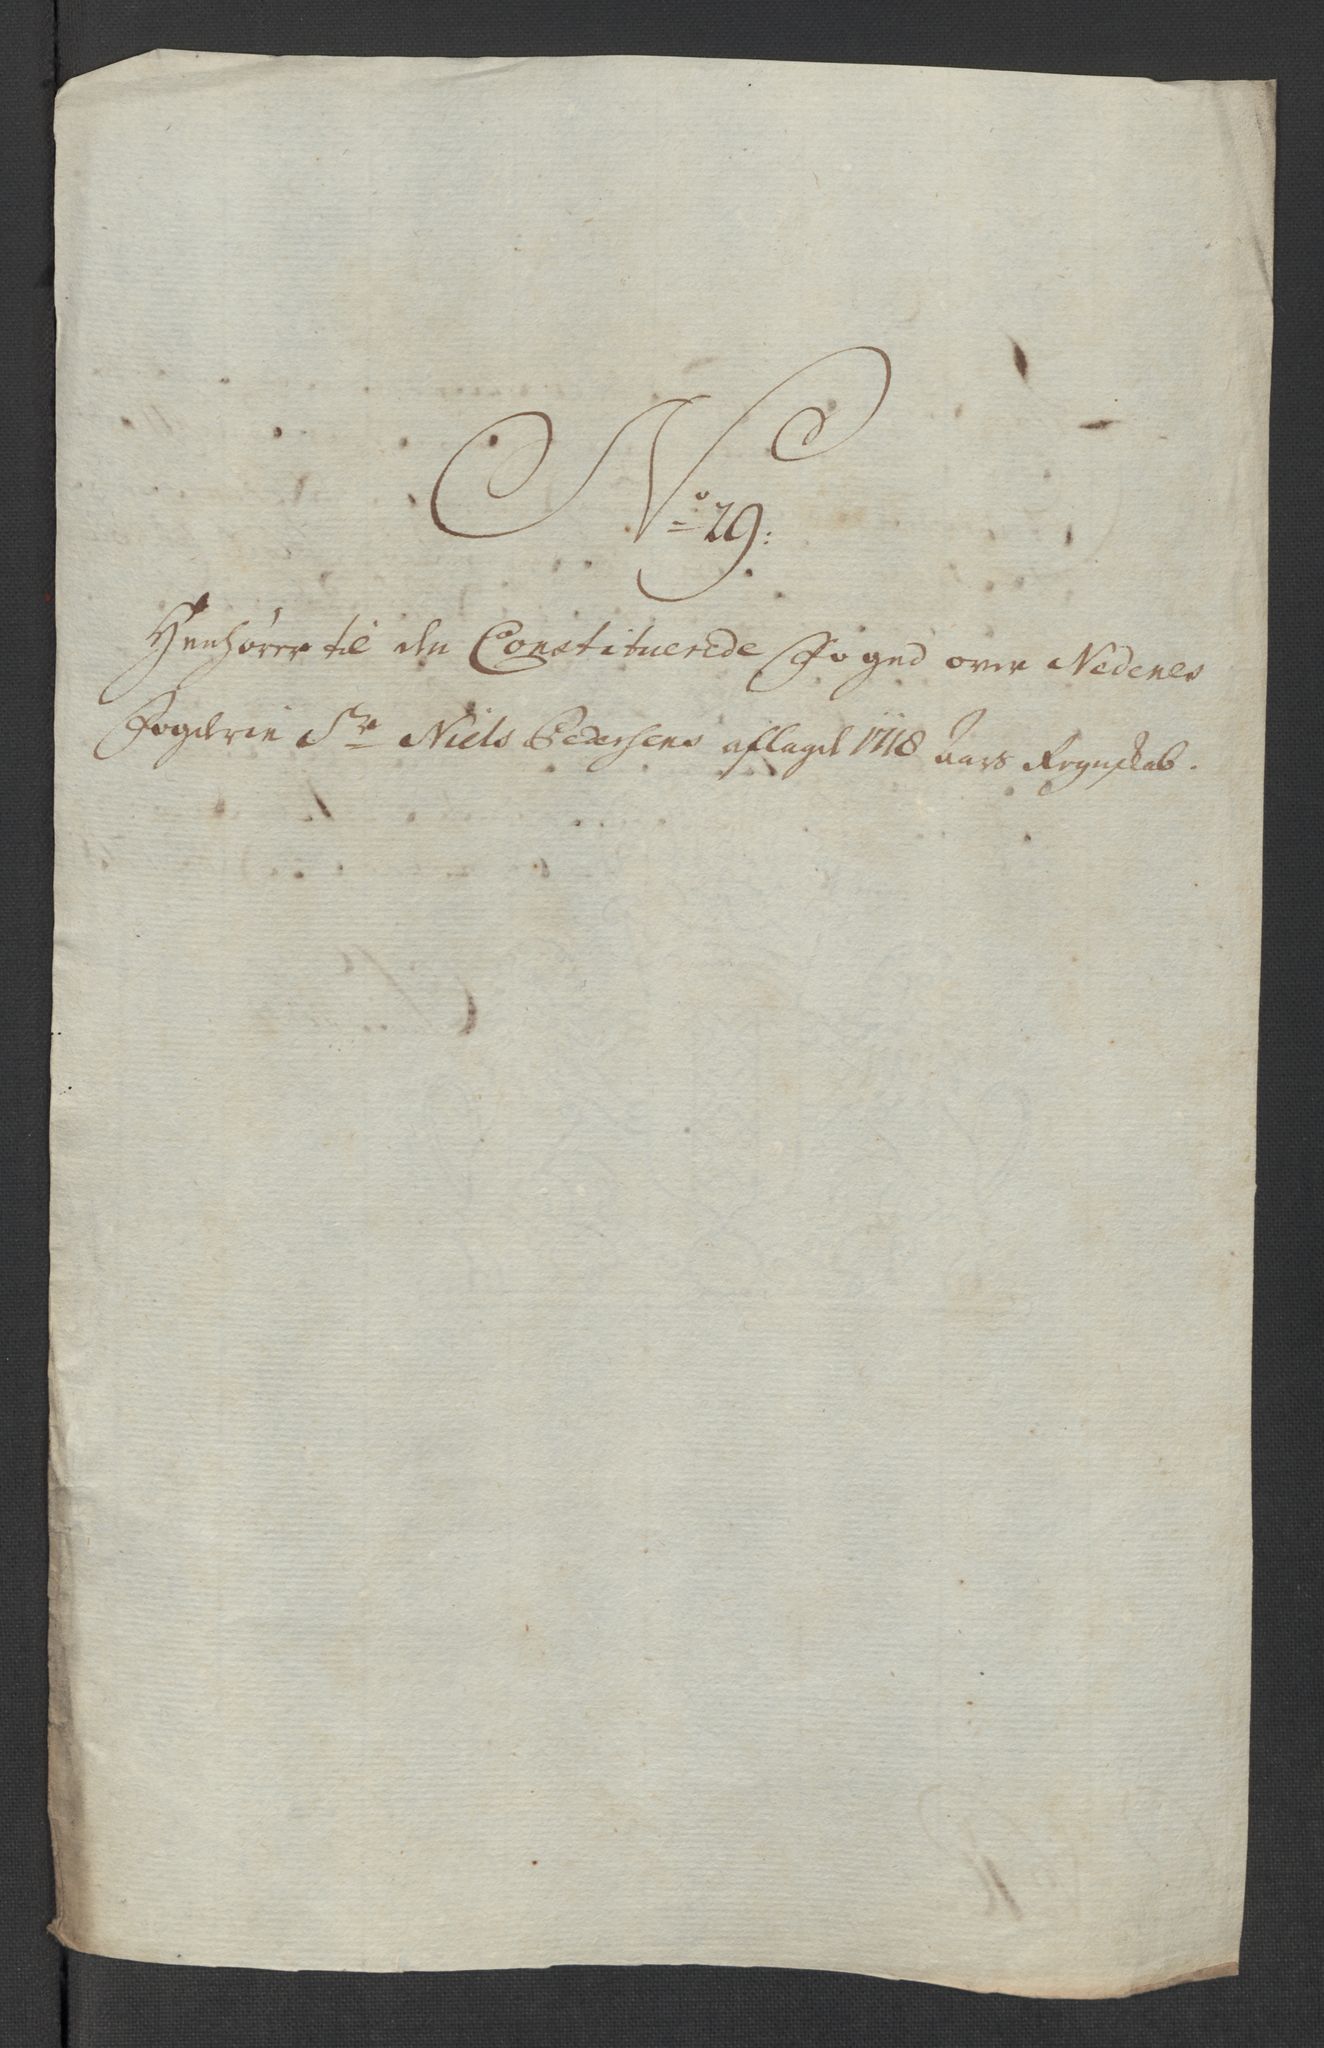 No 29:
Henhører til den Constituerede Fogud over Nedenes
Fogderie Sr Niels Pedersens aflagde 1718 Aars Regnskab.